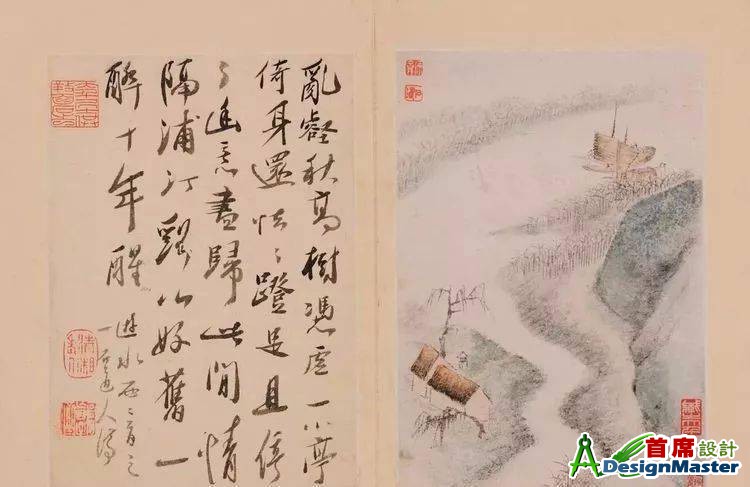 亂壑秋高樹憑虛一小亭
倚身還怯〻蹬足且停
〻幽意盡歸此間情
隔浦汀好舊一
醉十年醒
道人濟
首席設計
DesignMaster